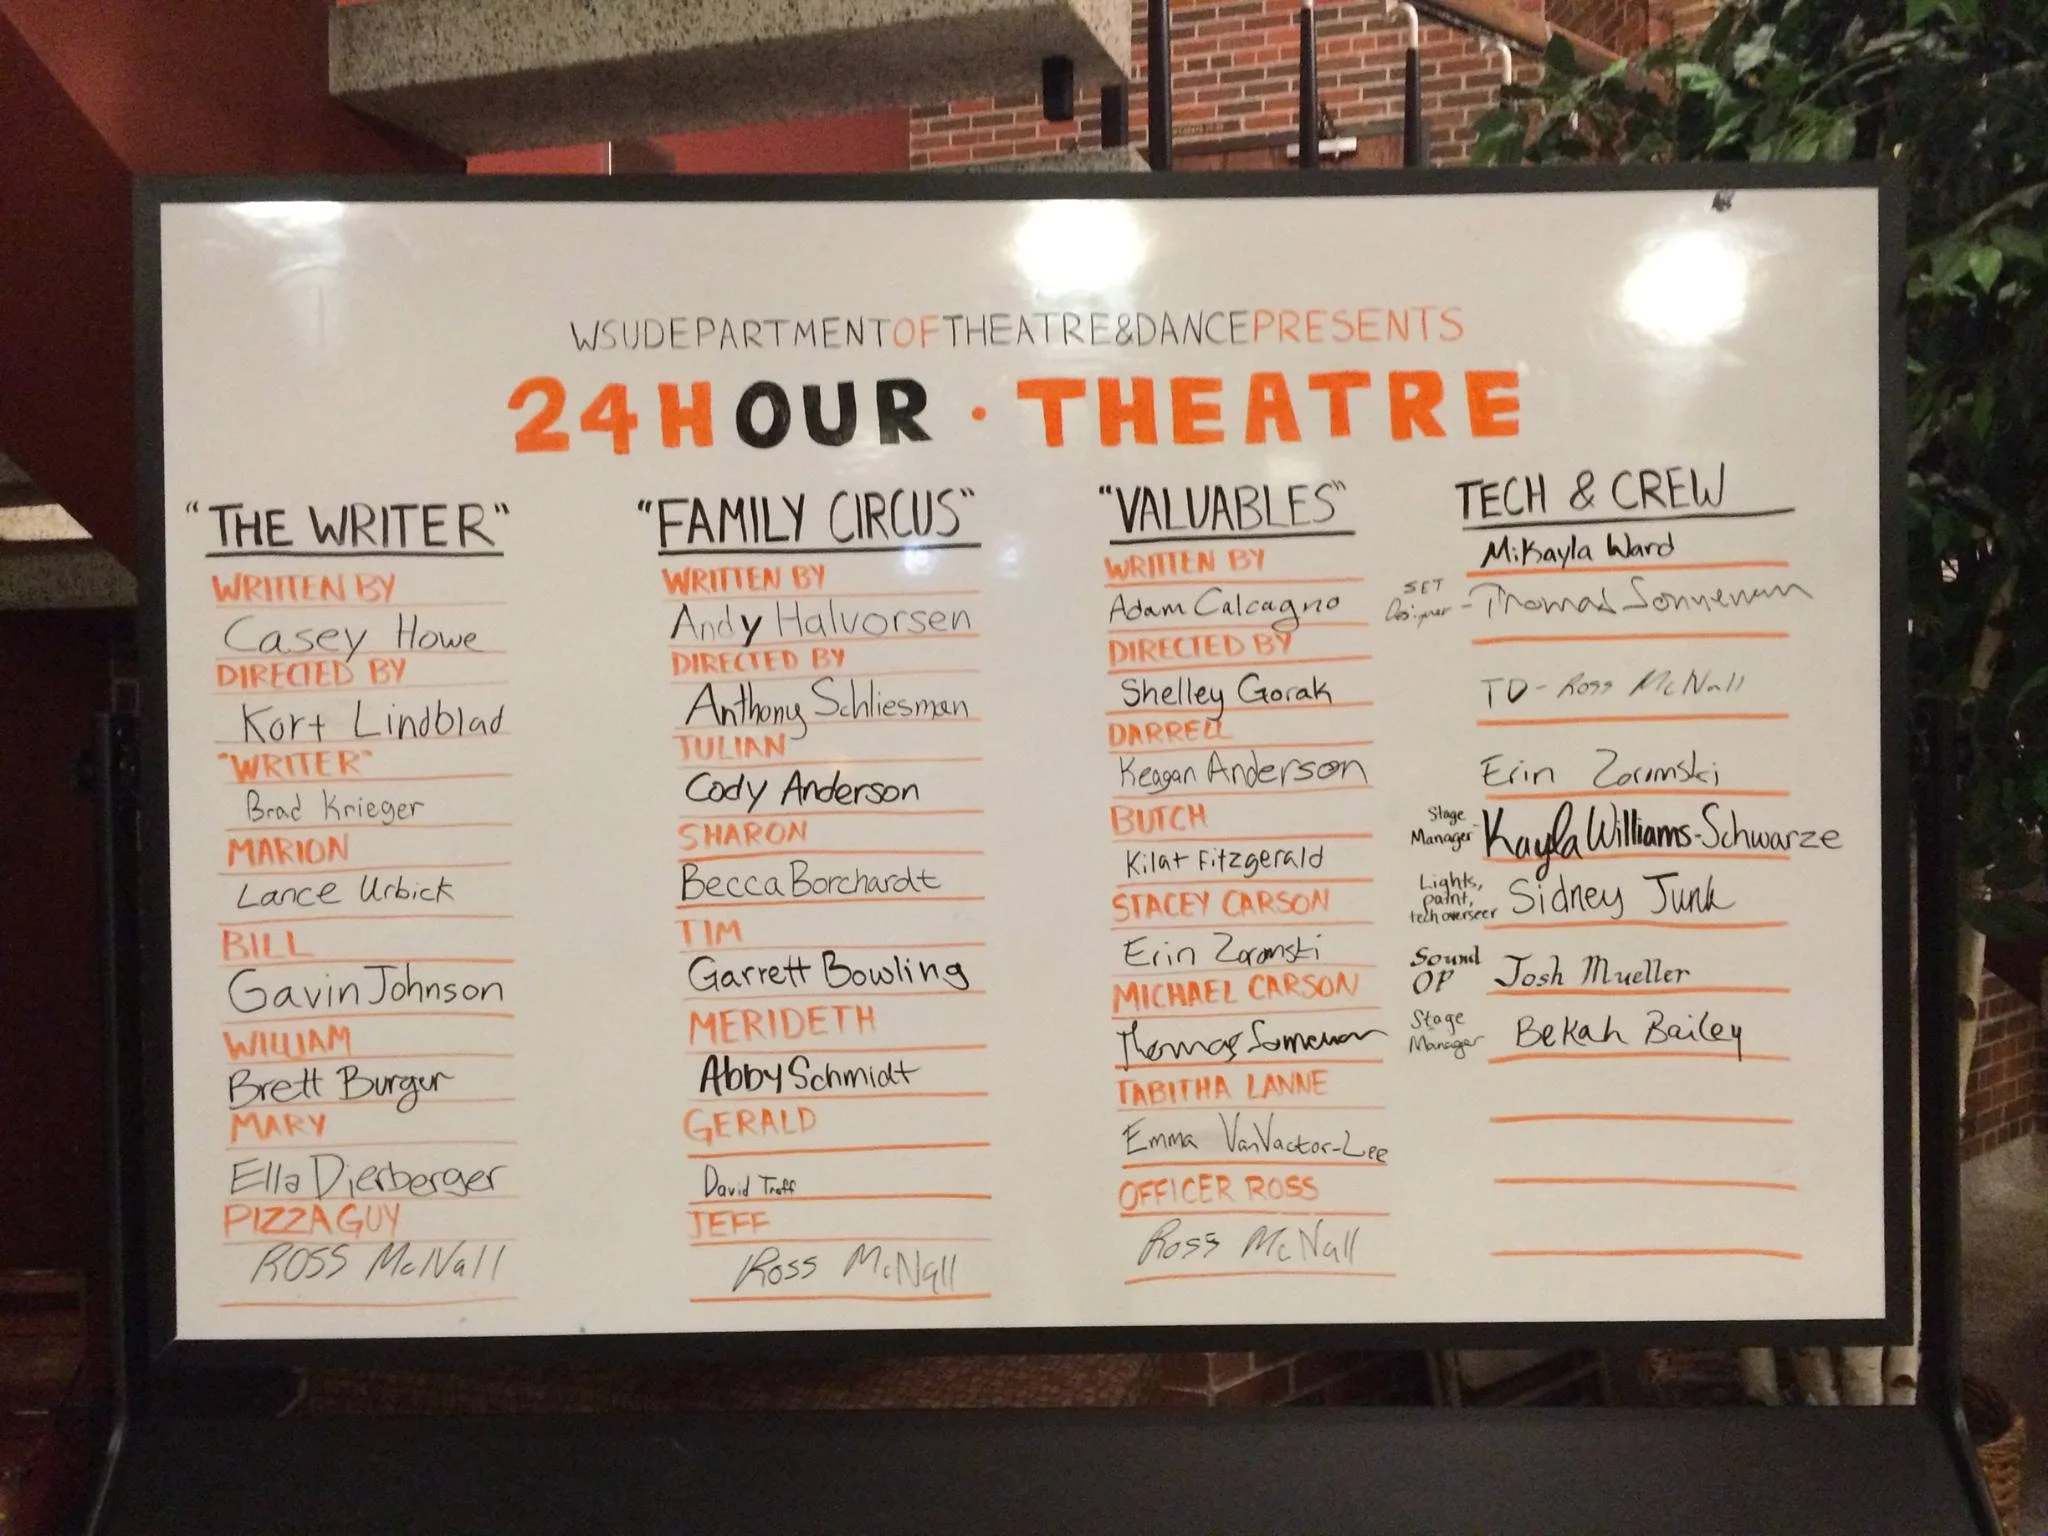 WSUDEPARTMENTOFTHEATRE&DANCEPRESENTS
24HOUR · THEATRE
"THE WRITER"
WRITTEN BY
Casey Howe
DIRECTED BY
Kort Lindblad
"WRITER"
Brad Krieger
MARION
Lance Urbick
BILL
Gavin Johnson
WILLIAM
Brett Burger
MARY
Ella Dierberger
PIZZA GUY
ROSS McNall
"FAMILY CIRCUS"
WRITTEN BY
Andy Halvorsen
DIRECTED BY
Anthony Schliesman
JULIAN
Cody Anderson
SHARON
Becca Borchardt
TIM
Garrett Bowling
MERIDETH
Abby Schmidt
GERALD
David Treff
JEFF
Ross McNall
"VALUABLES"
WRITTEN BY
Adam Calcagno
DIRECTED BY
Shelley Gorak
DARRELL
Keagan Anderson
BUTCH
Kilat Fitzgerald
STACEY CARSON
Erin Zoromski
MICHAEL CARSON
Thomas Sonneman
TABITHA LANNE
Emma VanVactor-Lee
OFFICER ROSS
Ross McNall
TECH & CREW
Mikayla Ward
SET Designer - Thomas Sonneman
TD - Ross McNall
Erin Zoromski
Stage Manager - Kayla Williams-Schwarze
Lights, paint, tech overseer Sidney Junk
Sound OP Josh Mueller
Stage Manager Bekah Bailey